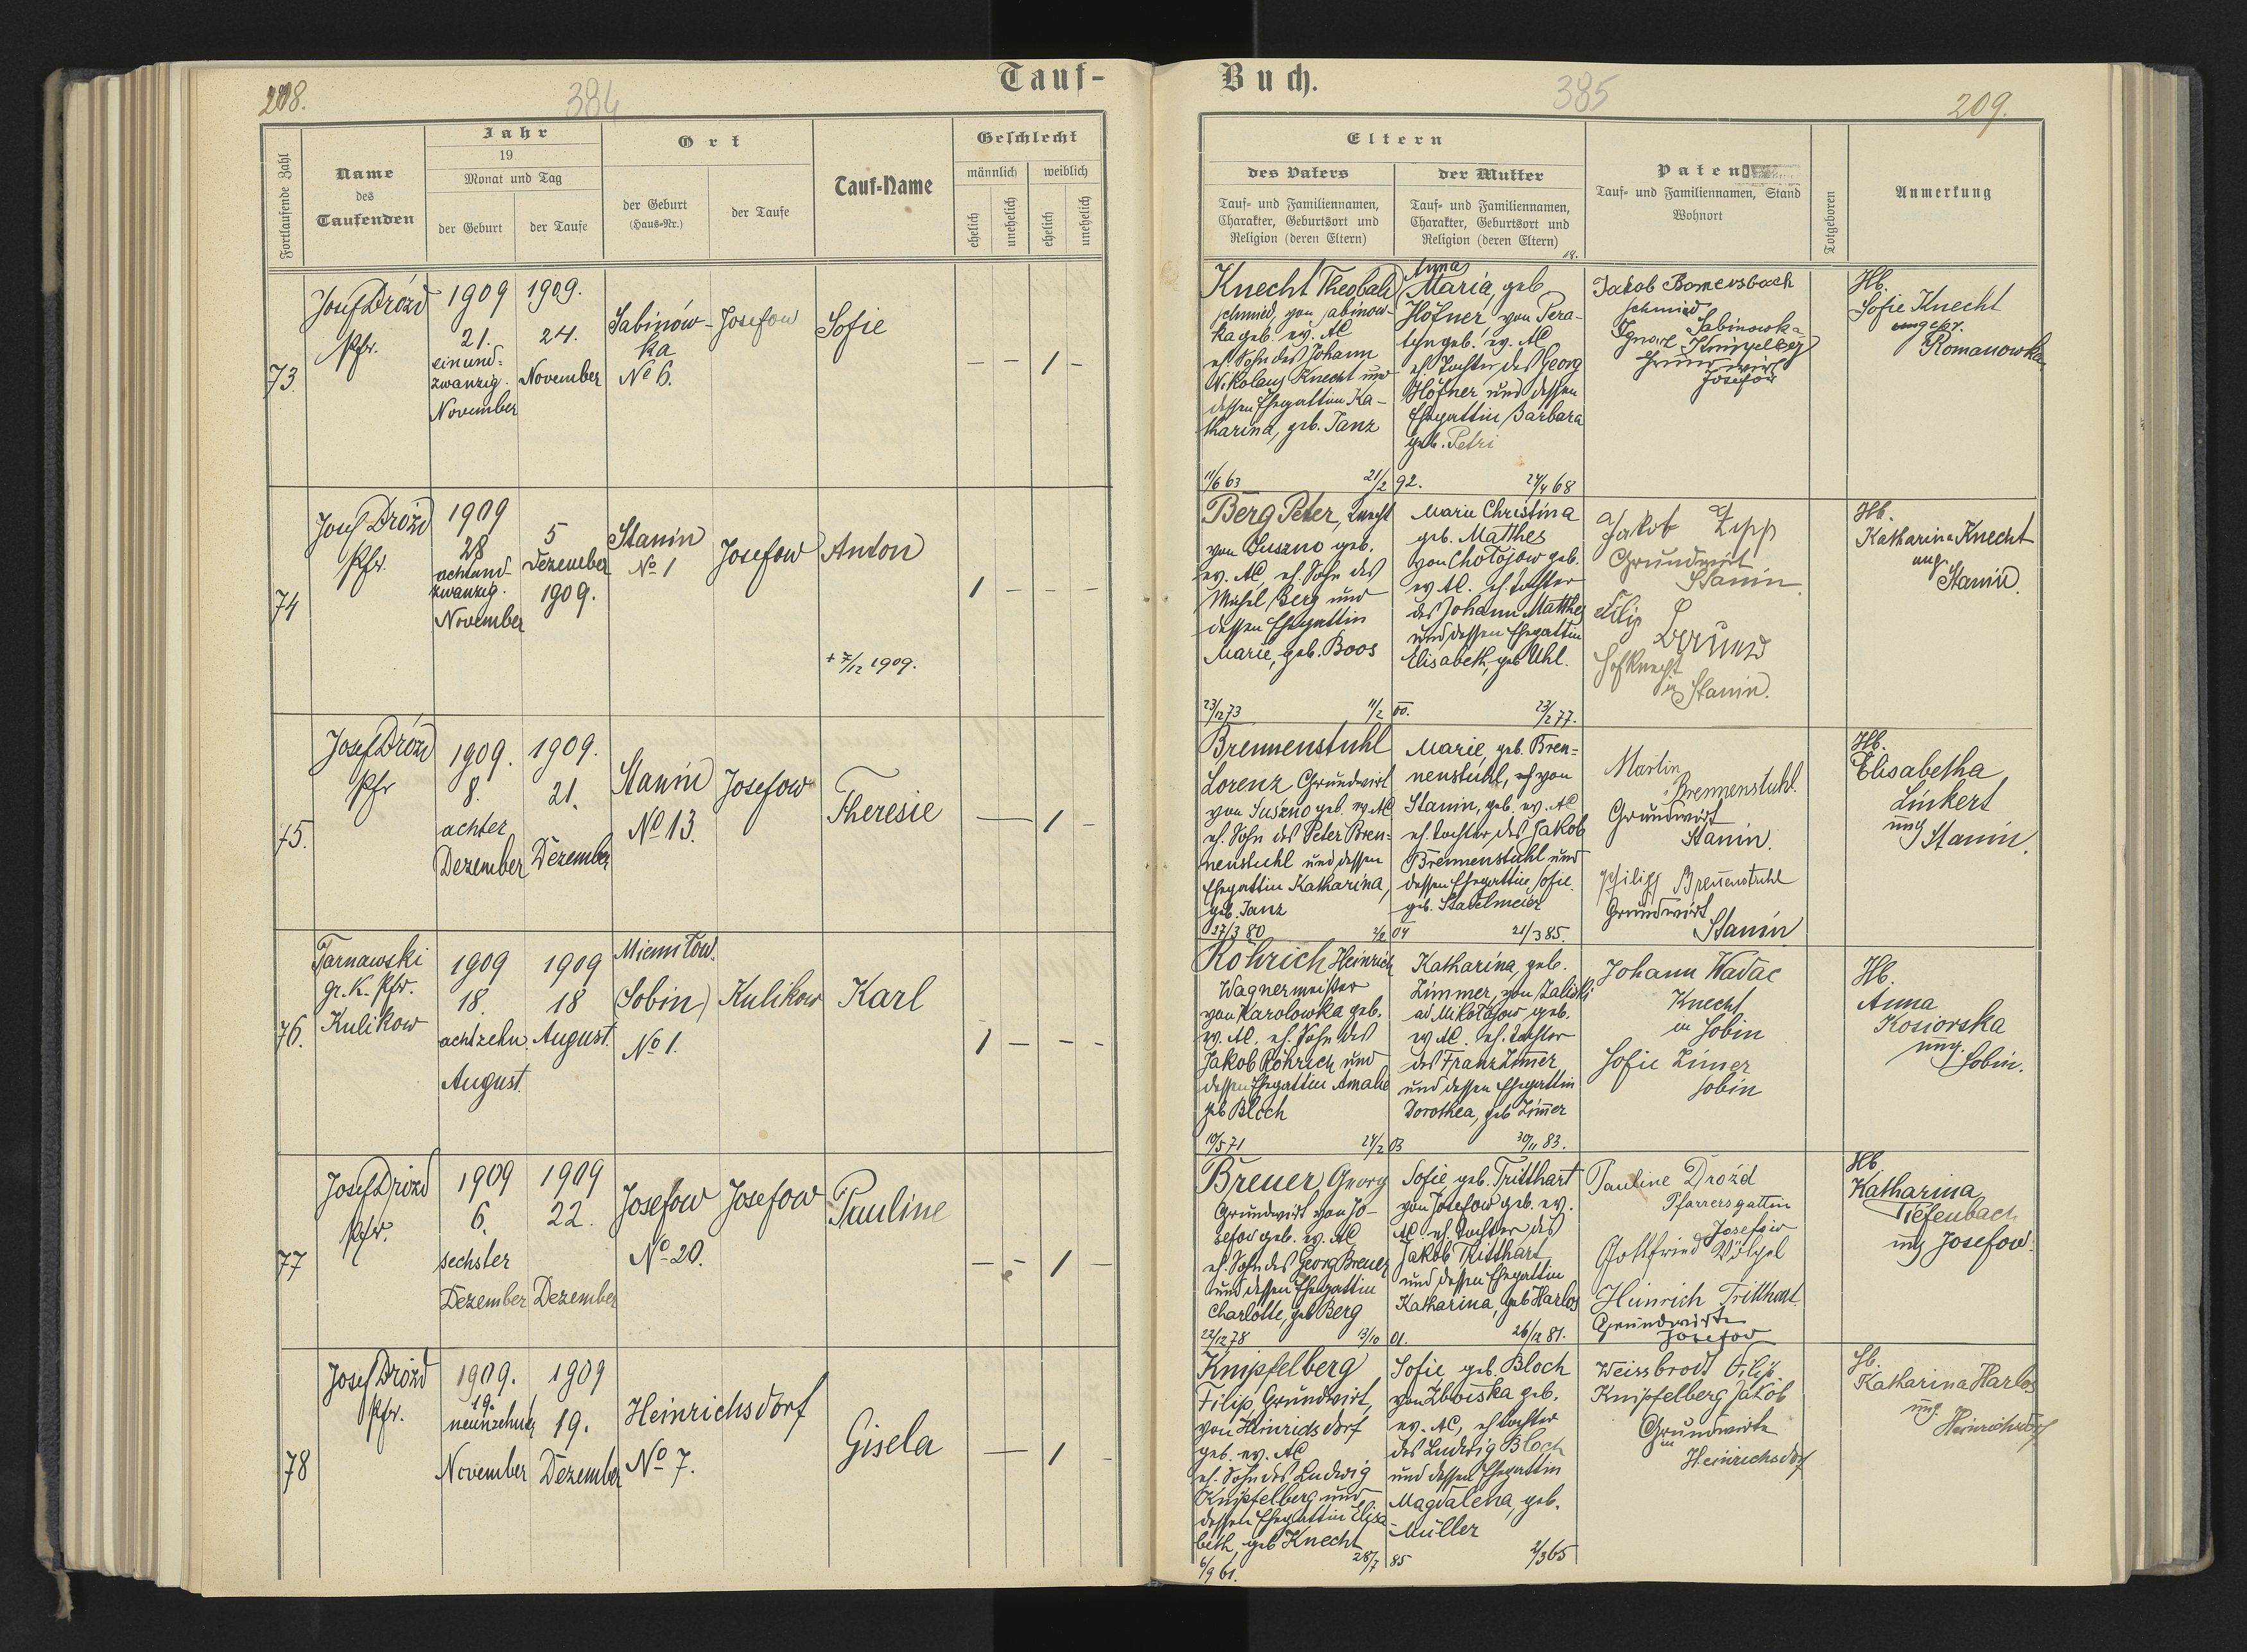 Tauf-
208.
384
Fortlaufende Zahl
Name
des
Taufenden
Jahr
19
Monat und Tag
der Geburt
der Taufe
Ort
der Geburt
(Haus-Nr.)
der Taufe
Tauf-Name
Geschlecht
männlich
weiblich
ehelich
unehelich
ehelich
unehelich
73
Josef Drózd
Pfr.
1909
21.
einund-
zwanzig.
November
1909.
24.
November
Sabinow-
ka
No 6.
Josefow
Sofie
- - 1 -
74
Josef Drózd
Pfr.
1909
28
achtund-
zwanzig.
November
5
Dezember
1909.
Stanin
No 1
Josefow
Anton
+ 7/12 1909.
1 - - -
75.
Josef Drózd
Pfr
1909.
8.
achter
Dezember
1909.
21.
Dezember
Stanin
No 13.
Josefow
Theresie
— 1 -
76.
Tarnawski
gr. K. Pfr.
Kulikow
1909
18.
achtzehn.
August.
1909
18
August.
(Sobin)
No 1.
Kulikow
Karl
1 - - -
77
Josef Drózd
Pfr.
1909
6.
sechster
Dezember
1909
22.
Dezember
Josefow
No 20.
Josefow
Pauline
- - 1 -
78
Josef Drózd
Pfr.
1909.
19.
November
1909
19.
Dezember
Heinrichsdorf
No 7.
Gisela
— 1 -
Buch.
385
209.
Eltern
des Vaters
Tauf- und Familiennamen,
Charakter, Geburtsort und
Religion (deren Eltern)
der Mutter
Tauf- und Familiennamen,
Charakter, Geburtsort und
Religion (deren Eltern)
Paten
Tauf- und Familiennamen, Stand
Wohnort
Totgeboren
Anmerkung
Knecht Theobald
schmied, von Sabinow-
ka geb. ev. AC
eh. Sohn des Johann
Nikolaus Knecht und
dessen Ehegattin Ka-
tharina, geb. Janz
11/6 63
21/2 92.
Anna
Maria, geb.
Höfner, von Pera-
tyn geb. ev. AC
eh. Tochter des Georg
Höfner und dessen
Ehegattin Barbara
geb. Petri
24/4 68
Jakob Bomersbach
schmied
Sabinowka
Ignatz Knipfelberg
Grundwirt
Josefow
Hb.
Sofie Knecht
ungepr.
Romanowka
Berg Peter, Knecht
von Suszno geb.
ev. AC, eh. Sohn des
Michel Berg und
dessen Ehegattin
Marie, geb. Boos
23/12 73
11/2 00.
Marie Christina
geb. Matthes
von Chołojow geb.
ev AC. eh. Tochter
des Johann Matthes
und dessen Ehegattin
Elisabeth, geb Uhl.
23/2 77.
Jakob Zipp
Grundwirt
Stanin
Filip
Hofknecht
in Stanin.
Hb.
Katharina Knecht
ung.
Stanin.
Brennenstuhl
Lorenz Grundwirt
von Suszno geb. ev. AC
eh. Sohn des Peter Bren-
nenstuhl und dessen
Ehegattin Katharina,
geb. Janz
27/3 80
2/2 04
Marie, geb. Bren-
nenstuhl, eh von
Stanin, geb. ev. AC
eh. Tochter des Jakob
Brennenstuhl und
dessen Ehegattin Sofie.
geb. Stadelmeier
21/3 85.
Martin
Brennenstuhl.
Grundwirt
Stanin.
Philipp Brennenstuhl
Grundwirt
Stanin
Hb.
Elisabetha
Linkert
ung
Stanin.
Röhrich Heinrich
Wagnermeister
von Karolowka geb.
ev. AC. eh. Sohn des
Jakob Röhrich und
dessen Ehegattin Amalie
geb Bloch
10/5 71
24/2 03
Katharina, geb.
Zimmer, von Zaliski
ad Mikołajow geb.
ev AC. eh. Tochter
des Franz Zimmer
und dessen Ehegattin
Dorothea, geb Zimmer
30/11 83.
Johann Wadac
Knecht
in Sobin
Sofie Zimer
Sobin
Hb.
Anna
Kosiorska
ung.
Sobin.
Breuer Georg
Grundwirt von Jo-
sefow geb. ev. AC
eh. Sohn des Georg Breuer
und dessen Ehegattin
Charlotte, geb Berg
22/12 78
13/10 01.
Sofie, geb. Tritthart
von Josefow geb. ev.
AC. eh. Tochter des
Jakob Tritthart
und dessen Ehegattin
Katharina, geb Harlos
26/12 81.
Pauline Drozd
Pfarrersgattin
Josefow
Gottfried Wölfel
Heinrich Tritthart.
Grundwirte
Josefow
Hb.
Katharina
Tiefenbach
ung Josefow.
Knipfelberg
Filip, Grundwirt,
von Heinrichsdorf
geb. ev. AC
eh. Sohn des Ludwig
Knipfelberg und
dessen Ehegattin Elisa-
beth, geb Knecht
6/9 61.
28/7 85
Sofie, geb. Bloch
von Zboiska geb.
ev. AC, eh Tochter
des Ludwig Bloch
und dessen Ehegattin
Magdalena, geb.
Müller
2/3 65
Weissbrodt Filip
Knipfelberg Jakob
Grundwirte
in
Heinrichsdorf
Hb.
Katharina Harlos
ung.
Heinrichsdorf